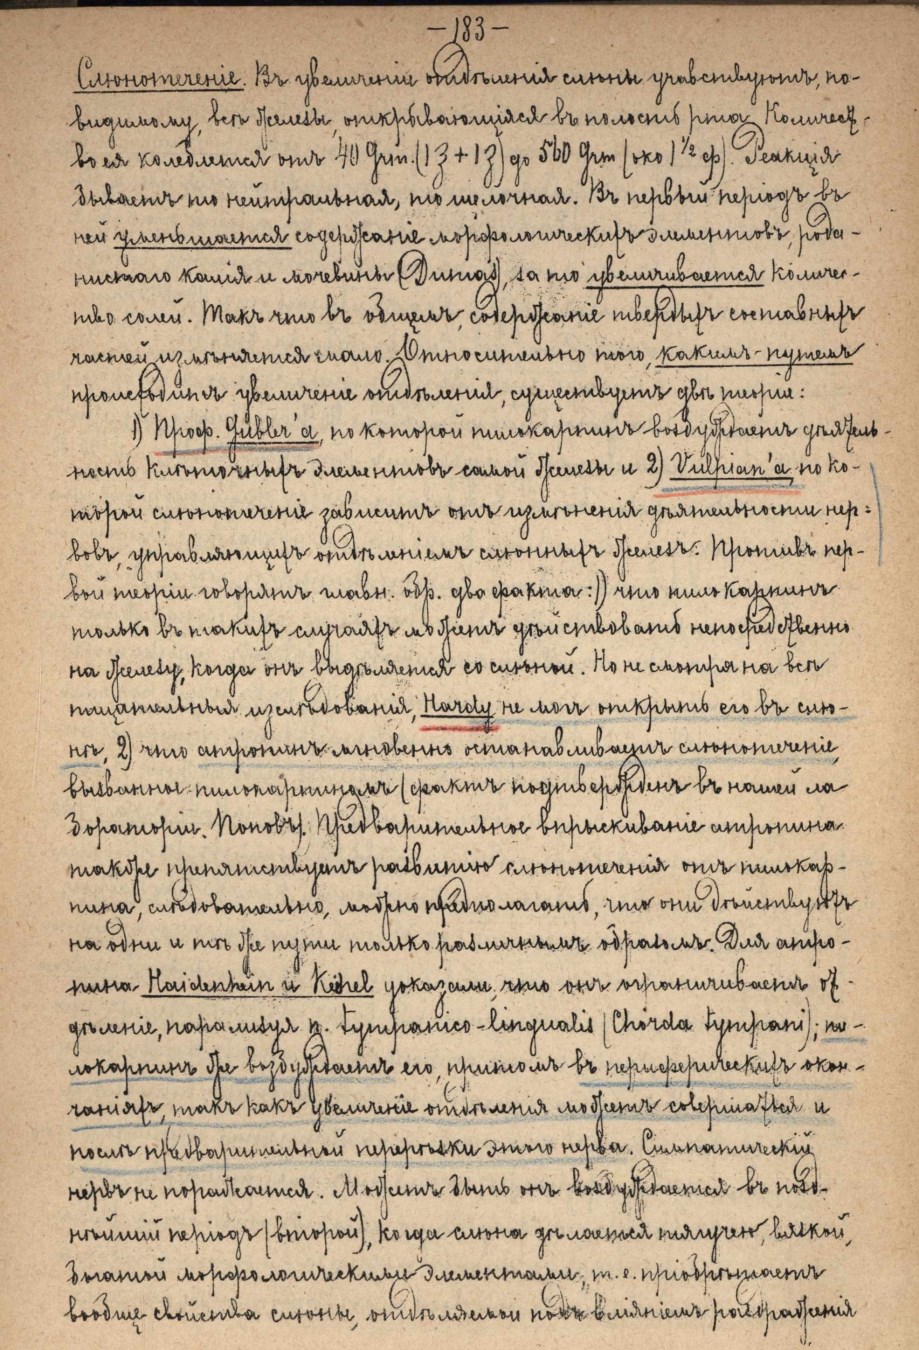 —183—
Слюнотеченіе. Въ увеличеніи отдѣленія слюны учавствуютъ, по-
видимому, всѣ железы, открывающіяся въ полость рта. Количест-
во ея колеблется отъ 40 Grm. (1ʒ + 1ʒ) до 560 Grm (око 1 1/2 ф). Реакція
бываетъ то нейтральная, то щелочная. Въ первый періодъ въ
ней уменьшается содержаніе морфологическихъ элементовъ, рода-
нистаго калія и мочевины (Dumas), за то увеличивается количес-
тво солей. Такъ что въ общемъ, содержаніе твердыхъ составныхъ
частей измѣняется мало. Относительно того, какимъ-путемъ
происходитъ увеличеніе отдѣленія, существуетъ двѣ теоріи:
1) Проф. Gubler'а, по которой пилокарпинъ возбуждаетъ дѣятель-
ность клѣточныхъ элементовъ самой железы и 2) Vulpian'а, по ко-
торой слюнотеченіе зависитъ отъ измѣненія дѣятельности нер-
вовъ, управляющихъ отдѣленіемъ слюнныхъ железъ. Противъ пер-
вой теоріи говорятъ главн. обр. два факта: 1) что пилокарпинъ
только въ такихъ случаяхъ можетъ дѣйствовать непосредственно
на железу, когда онъ выдѣляется со слюной. Но не смотря на всѣ
тщательныя изслѣдованія, Hardy не могъ открыть его въ слю-
нѣ, 2) что атропинъ мгновенно останавливаетъ слюнотеченіе,
вызванное пилокарпиномъ (фактъ подтвержденъ въ нашей ла
бораторіи. Поповъ). Предварительное впрыскиваніе атропина
также препятствуетъ развитію слюнотеченія отъ пилокар-
пина, слѣдовательно, можно предполагать, что они дѣйствуютъ
на одни и тѣ же пути только различнымъ образомъ. Для атро-
пина Haidenhein и Keuchel указали, что онъ ограничиваетъ от-
дѣленіе, парализуя n. tympanico-lingualis (Chorda tympani); пи-
локарпинъ же возбуждаетъ его, притомъ въ периферическихъ окон-
чаніяхъ, такъ какъ увеличеніе отдѣленія можетъ совершаться и
послѣ предварительной перерѣзки этого нерва. Симпатическій
нервъ не поражается. Можетъ быть онъ возбуждается въ позд-
нѣйшій періодъ (второй), когда слюна дѣлается тягучею, вязкой,
богатой морфологическими элементами, т. е. пріобрѣтаетъ
вообще свойства слюны, отдѣляемой подъ вліяніемъ раздраженія